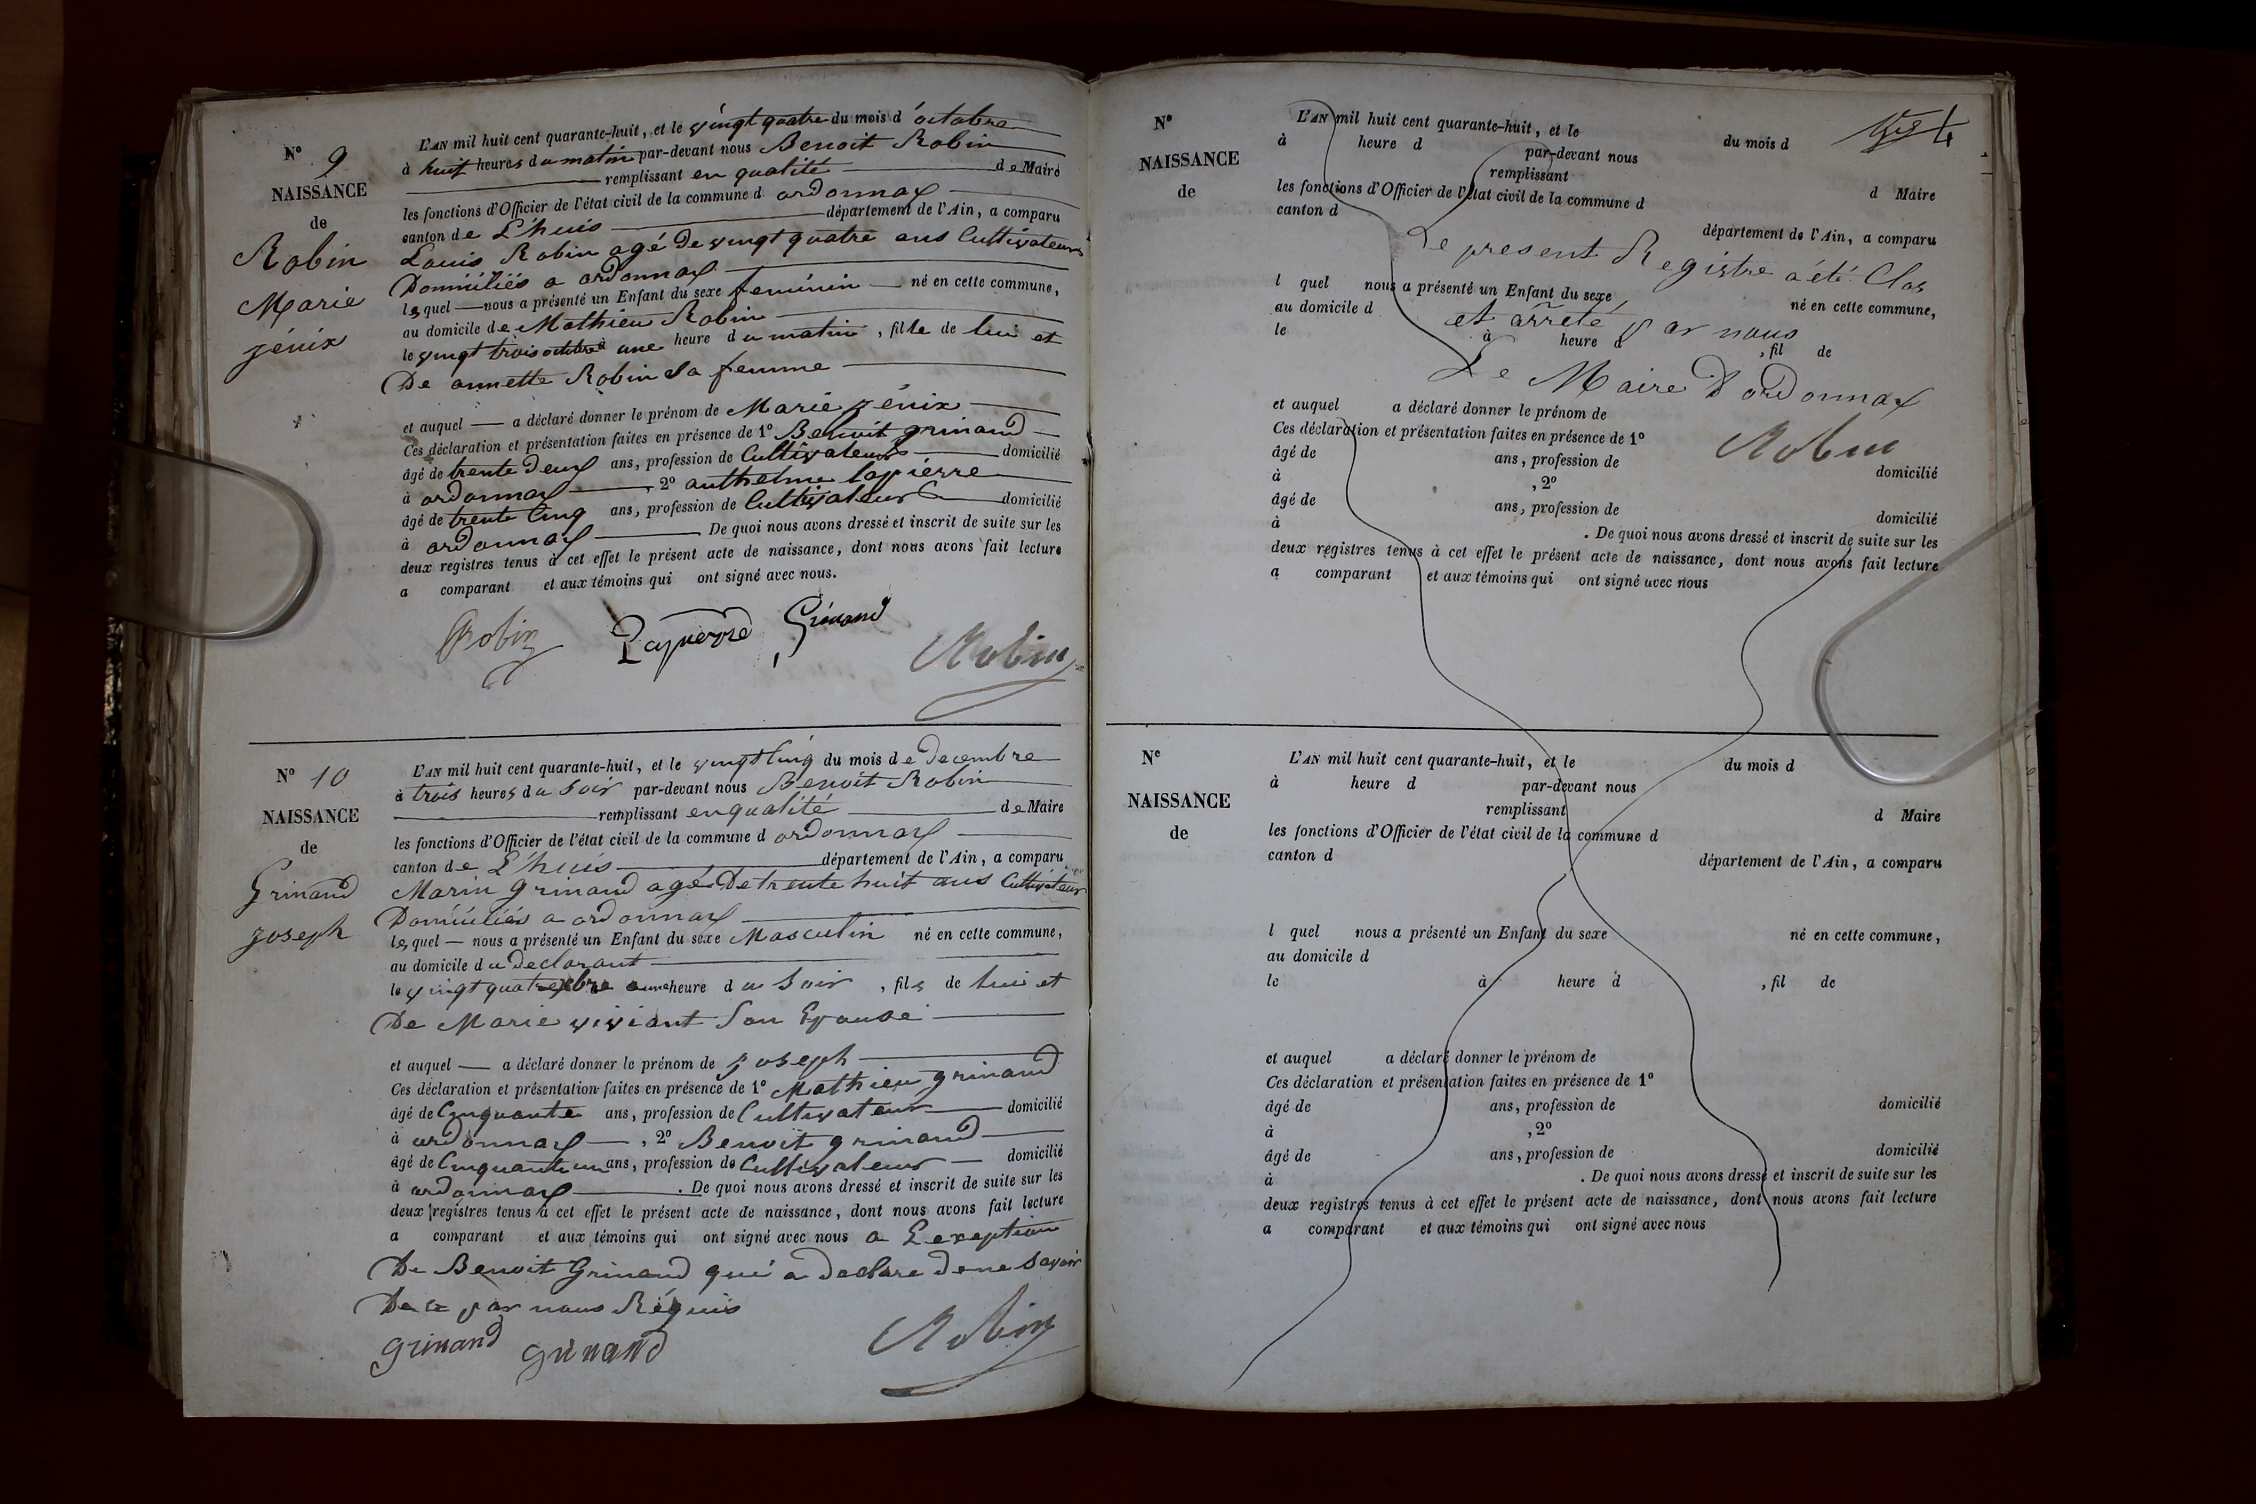 N° 9
NAISSANCE
de
Robin
Marie
jénix
L'AN mil huit cent quarante-huit, et le vingt quatre du mois d'octobre
à huit heures du matin par-devant nous Benoit Robin
remplissant en qualité de Maire
les fonctions d'Officier de l'état civil de la commune d ordonnax
canton de L'huis département de l'Ain, a comparu
Louis Robin agé de vingt quatre ans Cultivateur
Domiciliés a ordonnax
lequel nous a présenté un Enfant du sexe feminin né en cette commune,
au domicile de Mathieu Robin
le vingt trois octobre à une heure du matin, fille de lui et
De annette Robin Sa femme
et auquel a déclaré donner le prénom de Marie jénix
Ces déclaration et présentation faites en présence de 1° Benoit grinand
âgé de trente deux ans, profession de Cultivateurs domicilié
à ordonnax, 2° anthelme lapierre
âgé de trente Cinq ans, profession de Cultivateur domicilié
à ordonnax De quoi nous avons dressé et inscrit de suite sur les
deux registres tenus à cet effet le présent acte de naissance, dont nous avons fait lecture
a comparant et aux témoins qui ont signé avec nous.
Robin Lapierre Grinand Robin
N° 10
NAISSANCE
de
Grinand
joseph
L'AN mil huit cent quarante-huit, et le vingt Cinq du mois de Decembre
à trois heures du Soir par-devant nous Benoit Robin
remplissant en qualité de Maire
les fonctions d'Officier de l'état civil de la commune d ordonnax
canton de L'huis département de l'Ain, a comparu
Marin grinand agé De trente huit ans Cultivateur
Domiciliés a ordonnax
lequel nous a présenté un Enfant du sexe Masculin né en cette commune,
au domicile du declarant
le vingt quatre à une heure du Soir, fils de lui et
De Marie viviant Son Epouse
et auquel a déclaré donner le prénom de joseph
Ces déclaration et présentation faites en présence de 1° Mathieu grinand
âgé de Cinquante ans, profession de Cultivateur domicilié
à ordonnax, 2° Benoit grinand
âgé de Cinquante un ans, profession de Cultivateur domicilié
à ordonnax. De quoi nous avons dressé et inscrit de suite sur les
deux registres tenus à cet effet le présent acte de naissance, dont nous avons fait lecture
a comparant et aux témoins qui ont signé avec nous a L'exeption
De Benoit Grinand qui a declare de ne Savoir
De ce par nous Réquis
grinand grinand Robin
4
N°
NAISSANCE
de
L'AN mil huit cent quarante-huit, et le du mois d
à heure d par-devant nous
remplissant d Maire
les fonctions d'Officier de l'état civil de la commune d
canton d département de l'Ain, a comparu
Le present Registre a été Clos
l quel nous a présenté un Enfant du sexe né en cette commune,
au domicile d
et arrêté par nous
le à heure d, fil de
Le Maire D'ordonnax
et auquel a déclaré donner le prénom de
Ces déclaration et présentation faites en présence de 1°
Robin
âgé de ans, profession de domicilié
à, 2°
âgé de ans, profession de domicilié
à. De quoi nous avons dressé et inscrit de suite sur les
deux registres tenus à cet effet le présent acte de naissance, dont nous avons fait lecture
a comparant et aux témoins qui ont signé avec nous
N°
NAISSANCE
de
L'AN mil huit cent quarante-huit, et le du mois d
à heure d par-devant nous
remplissant d Maire
les fonctions d'Officier de l'état civil de la commune d
canton d département de l'Ain, a comparu
l quel nous a présenté un Enfant du sexe né en cette commune,
au domicile d
le à heure d, fil de
et auquel a déclaré donner le prénom de
Ces déclaration et présentation faites en présence de 1°
âgé de ans, profession de domicilié
à, 2°
âgé de ans, profession de domicilié
à. De quoi nous avons dressé et inscrit de suite sur les
deux registres tenus à cet effet le présent acte de naissance, dont nous avons fait lecture
a comparant et aux témoins qui ont signé avec nous